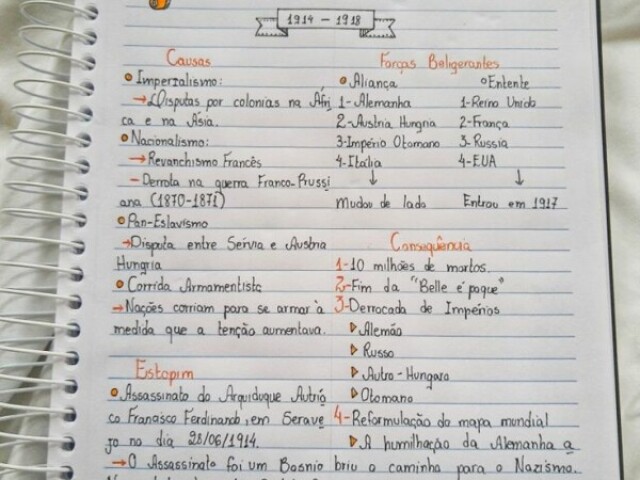 1914 - 1918
Causas
Imperialismo:
→ Disputas por colonias na Áfri
ca e na Ásia.
Nacionalismo:
→ Revanchismo Francês
- Derrota na guerra Franco-Prussi
ana (1870-1871)
Pan-Eslavismo
→ Disputa entre Sérvia e Austria
Hungria
Corrida Armamentista
→ Nações corriam para se armar à
medida que a tenção aumentava.
Estopim
Assassinato do Arquiduque Autría
co Francisco Ferdinando, em Serave
jo no dia 28/06/1914.
→ O Assassinato foi um Bosnio
Forças Beligerantes
Aliança
1- Alemanha
2- Austria Hungria
3- Império Otomano
4- Itália
↓
Mudou de lado
Entente
1- Reino Unido
2- França
3- Russia
4- EUA
↓
Entrou em 1917
Consequência
1- 10 milhões de mortos.
2- Fim da "Belle é paque"
3- Derrocada de Impérios
Alemão
Russo
Autro-Hungaro
Otomano
4- Reformulação do mapa mundial
A humilhação da Alemanha a
briu o caminho para o Nazismo.